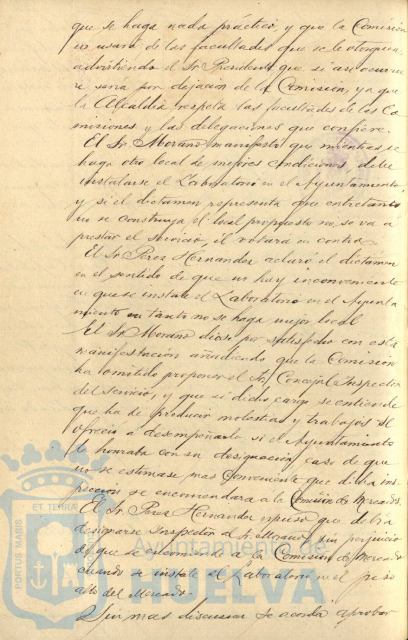 que se haga nada práctico, y que la Comisión
no usará de las facultades que se le otorguen
advirtiendo el Sr. Presidente que si así ocurriere
sería por dejación de la Comisión, ya que
la Alcaldía respeta las facultades de las Co
misiones y las delegaciones que confiere.
El Sr. Morano manifestó que mientras se
haga otro local de mejores condiciones, debe
instalarse el Laboratorio en el Ayuntamiento,
y si el dictamen representa que entretanto
no se construya el local propuesto no se va a
prestar el servicio, él votará en contra.
El Sr. Perez Hernandez aclaró el dictamen
en el sentido de que no hay inconveniente
en que se instale el Laboratorio en el Ayunta
miento en tanto no se haga mejor local
El Sr. Morano dióse por satisfecho con esta
manifestación añadiendo que la Comisión
ha omitido proponer el Sr. Concejal Inspector
del servicio, y que si dicho cargo se entiende
que ha de producir molestias y trabajos se
ofrecía a desempeñarlo si el Ayuntamiento
le honraba con su designación, caso de que
no se estimase mas conveniente que dicha ins
pección se encomendara a la Comisión de Mercados.
El Sr. Perez Hernandez expuso que debía
designarse Inspector al Sr. Morano, sin perjuicio
de que se encomiende a la Comisión de Mercados
cuando se instale el Laboratorio en el piso
alto del Mercado.
Sin mas discusion se acordó aprobar
PORTUS MARIS ET TERRAE
Ayuntamiento de
HUELVA